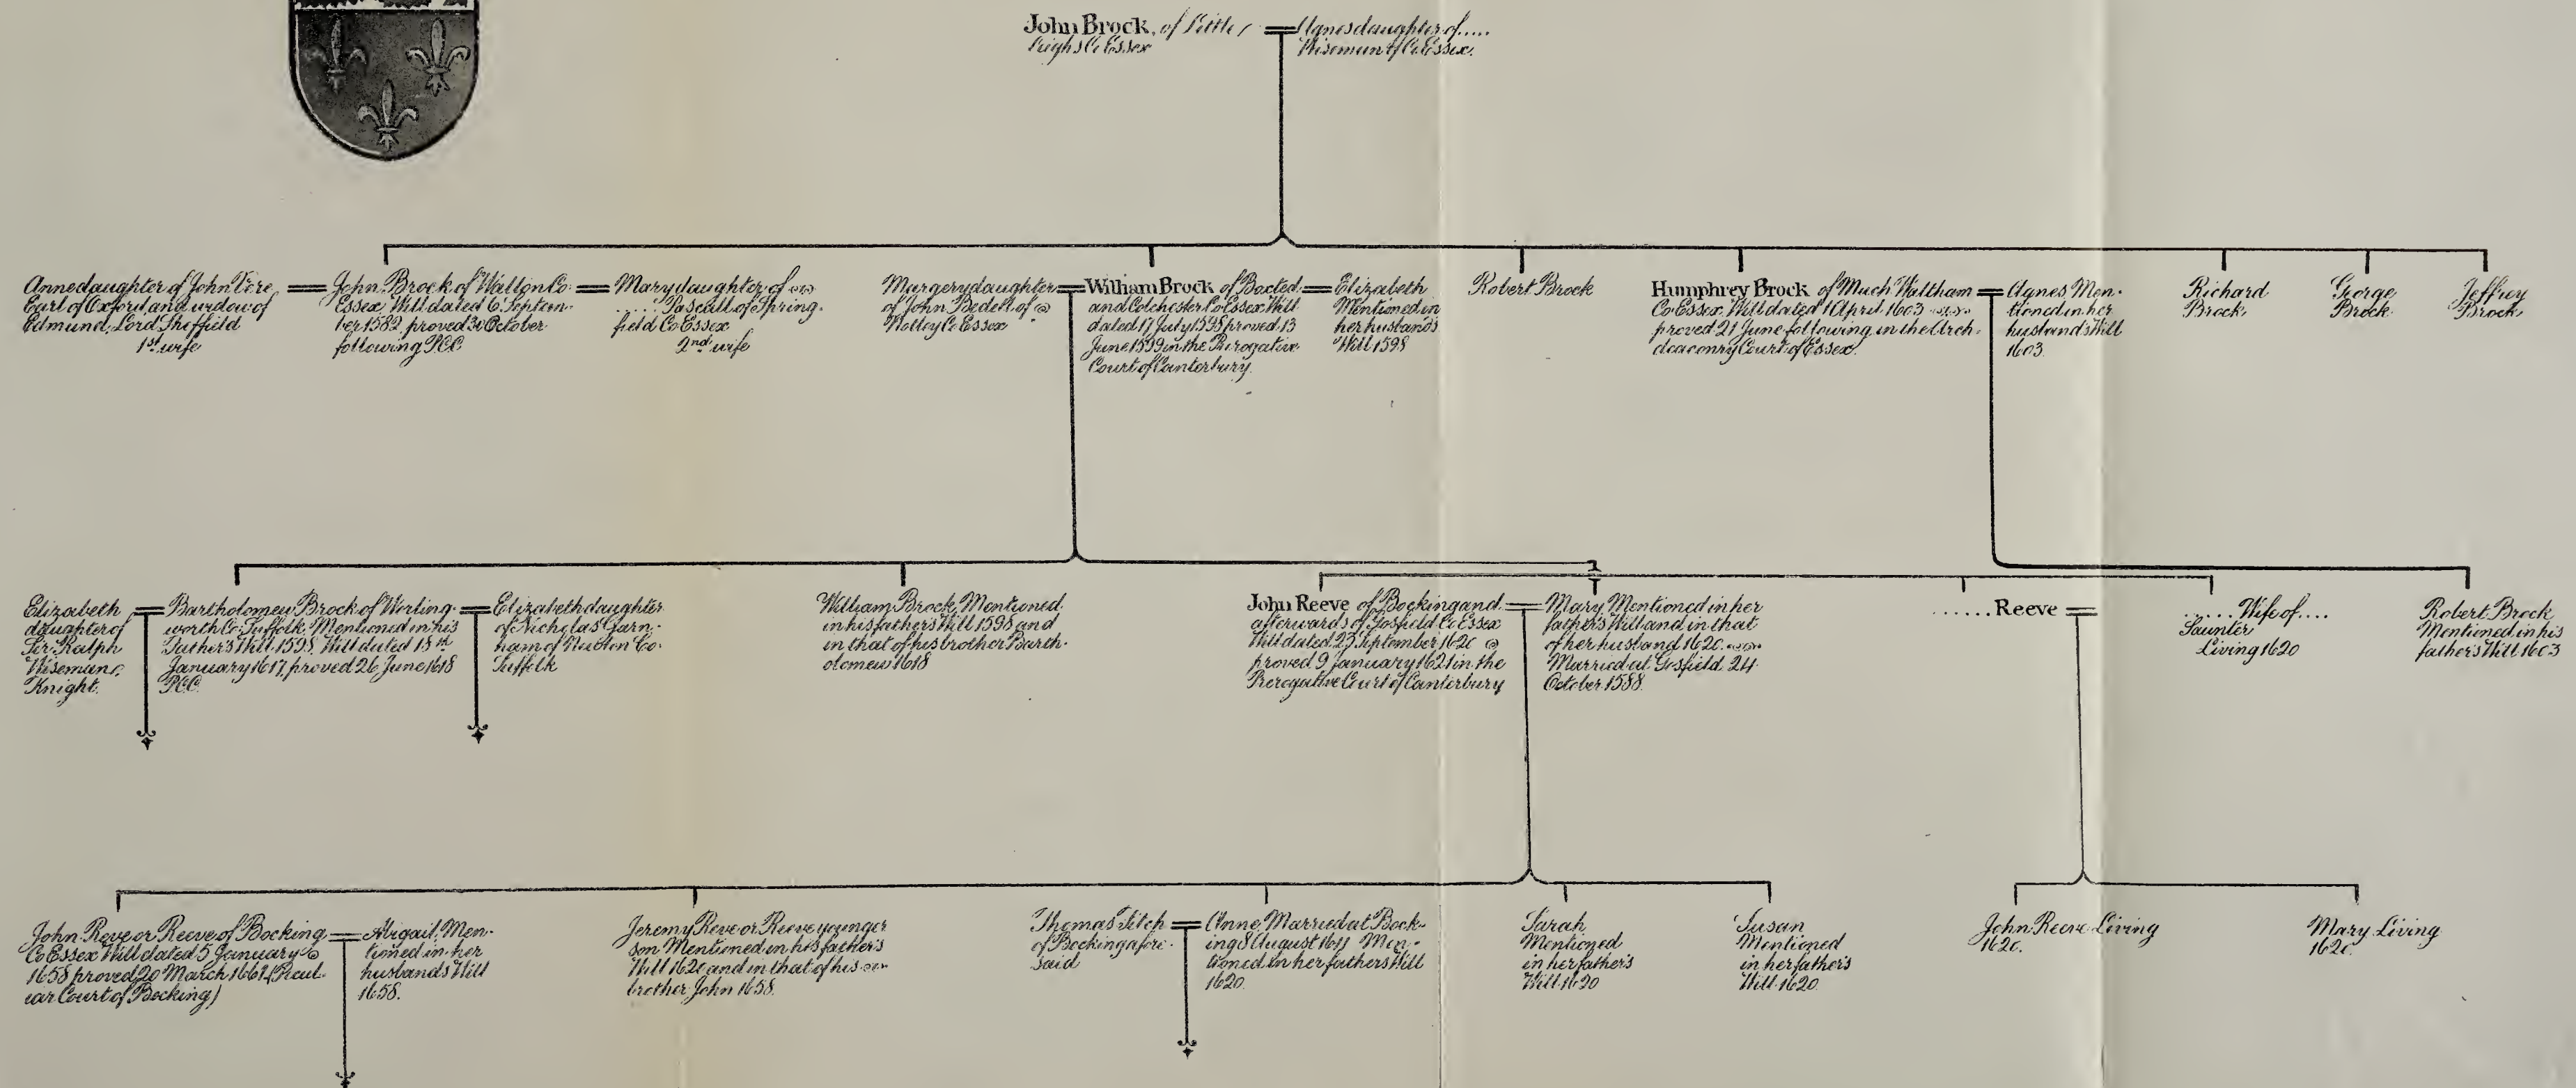 John Brock, of Little
Leighs Co Essex
Agnes daughter of.....
Wiseman of Co. Essex.
Anne daughter of John Vere
Earl of Oxford, and widow of
Edmund, Lord Sheffield
1st wife
John Brock of Walton Co.
Essex, Will dated 6 Septem-
ber 1582, proved 30 October
following P.C.C.
Mary daughter of
...... Pascall of Spring-
field Co Essex
2nd wife
Margery daughter
of John Bedell of
Notley Co Essex
William Brock of Boxted
and Colchester Co Essex Will
dated 17 July 1598 proved 13
June 1599 in the Prerogative
Court of Canterbury.
Elizabeth
Mentioned in
her husbands
Will 1598
Robert Brock
Humphrey Brock of Much Waltham
Co Essex, Will dated 1 April 1603
proved 21 June following in the Arch-
deaconry Court of Essex.
Agnes Men-
tioned in her
husbands Will
1603.
Richard
Brock
George
Brock
Jeffrey
Brock
Elizabeth
daughter of
Sir Ralph
Wiseman,
Knight.
Bartholomew Brock of Worling-
worth Co. Suffolk, Mentioned in his
Father's Will 1598, Will dated 18th
January 1617, proved 26 June 1618
P.C.C.
Elizabeth daughter
of Nicholas Garn-
ham of Co.
Suffolk
William Brock, Mentioned
in his fathers Will 1598 and
in that of his brother Barth-
olomew 1618
John Reeve of Bocking and
afterwards of Gosfield Co Essex
Will dated 23 September 1620
proved 9 January 1621 in the
Prerogative Court of Canterbury
Mary Mentioned in her
fathers Will and in that
of her husband 1620.
Married at Gosfield 24
October 1588.
......Reeve
.....Wife of....
Saunter
Living 1620
Robert Brock
Mentioned in his
father's Will 1603
John Reve or Reeve of Bocking
Co Essex Will dated 5 January
1658 proved 20 March 1661 (Pecul-
iar Court of Bocking)
Abigail, Men-
tioned in her
husbands Will
1658.
Jeremy Reve or Reeve younger
son Mentioned in his father's
Will 1620 and in that of his
brother John 1658.
Thomas Fitch
of Bocking afore-
said
Anne, Married at Bock-
ing 8 August 1611 Men-
tioned in her fathers Will
1620.
Sarah,
Mentioned
in her father's
Will 1620
Susan
Mentioned
in her father's
Will 1620
John Reeve Living
1620.
Mary Living
1620.